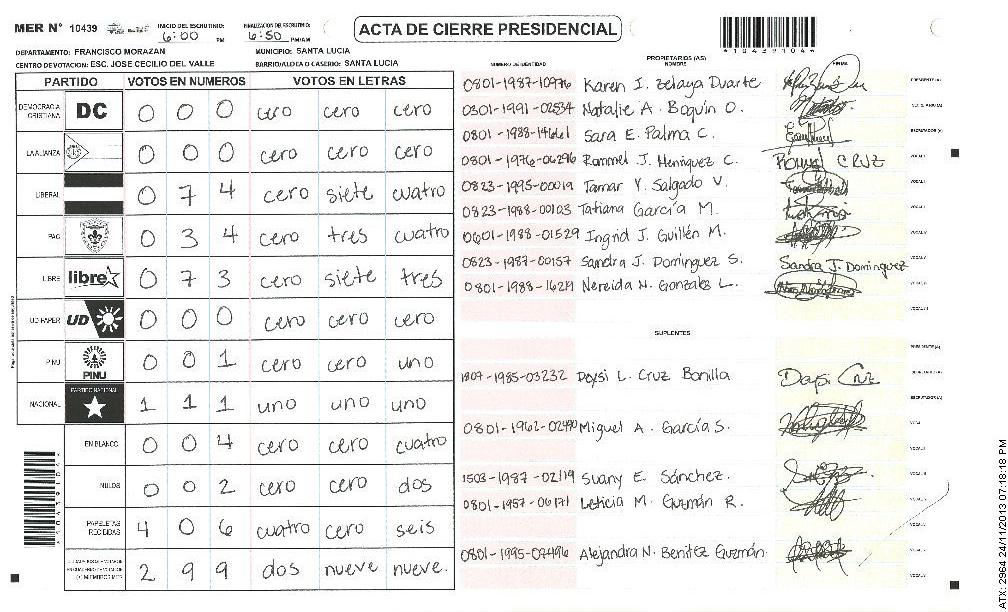 MER N° 10439 INICIO DEL ESCRUTINIO: 6:00 PM FINALIZACION DEL ESCRUTINIO: 6:50 PM/AM
ACTA DE CIERRE PRESIDENCIAL
*10439104*
DEPARTAMENTO: FRANCISCO MORAZAN MUNICIPIO: SANTA LUCIA
CENTRO DE VOTACION: ESC. JOSE CECILIO DEL VALLE BARRIO/ALDEA O CASERIO: SANTA LUCIA
PARTIDO VOTOS EN NUMEROS VOTOS EN LETRAS
DEMOCRACIA CRISTIANA DC 0 0 0 cero cero cero
LA ALIANZA 0 0 0 cero cero cero
LIBERAL 0 7 4 cero siete cuatro
PAC 0 3 4 cero tres cuatro
LIBRE libre 0 7 3 cero siete tres
UD FAPER UD 0 0 0 cero cero cero
PINU PINU 0 0 1 cero cero uno
NACIONAL PARTIDO NACIONAL 1 1 1 uno uno uno
EN BLANCO 0 0 4 cero cero cuatro
NULOS 0 0 2 cero cero dos
PAPELETAS RECIBIDAS 4 0 6 cuatro cero seis
2 9 9 dos nueve nueve.
PROPIETARIOS (AS)
NUMERO DE IDENTIDAD NOMBRE FIRMA
0801-1987-10976 Karen I. Zelaya Duarte PRESIDENTE (A)
0301-1991-02534 Natalie A. Boquin O. SECRETARIO (A)
0801-1988-14661 Sara E. Palma C. ESCRUTADOR (A)
0801-1976-06296 Rommel J. Henriquez C. CRUZ VOCAL I
0823-1995-00019 Tamar Y. Salgado V.
0823-1988-00103 Tatiana García M.
0601-1988-01529 Ingrid J. Guillén M.
0823-1987-00157 Sandra J. Dominguez S. Sandra J. Dominguez
0801-1988-16219 Nereida N. Gonzales L.
SUPLENTES
PRESIDENTE (A)
1807-1985-03232 Daysi L. Cruz Bonilla Daysi Cruz SECRETARIO (A)
ESCRUTADOR (A)
0801-1962-02490 Miguel A. García S.
1503-1987-02119 Suany E. Sánchez.
0801-1957-06171 Leticia M. Guzmán R.
0801-1995-07496 Alejandra N. Benitez Guzmán
ATX: 2964 24/11/2013 07:18:18 PM